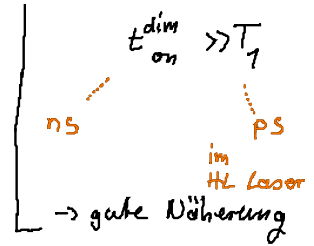 t_on^dim >> T_1
ns ps
im
HL Laser
-> gute Näherung